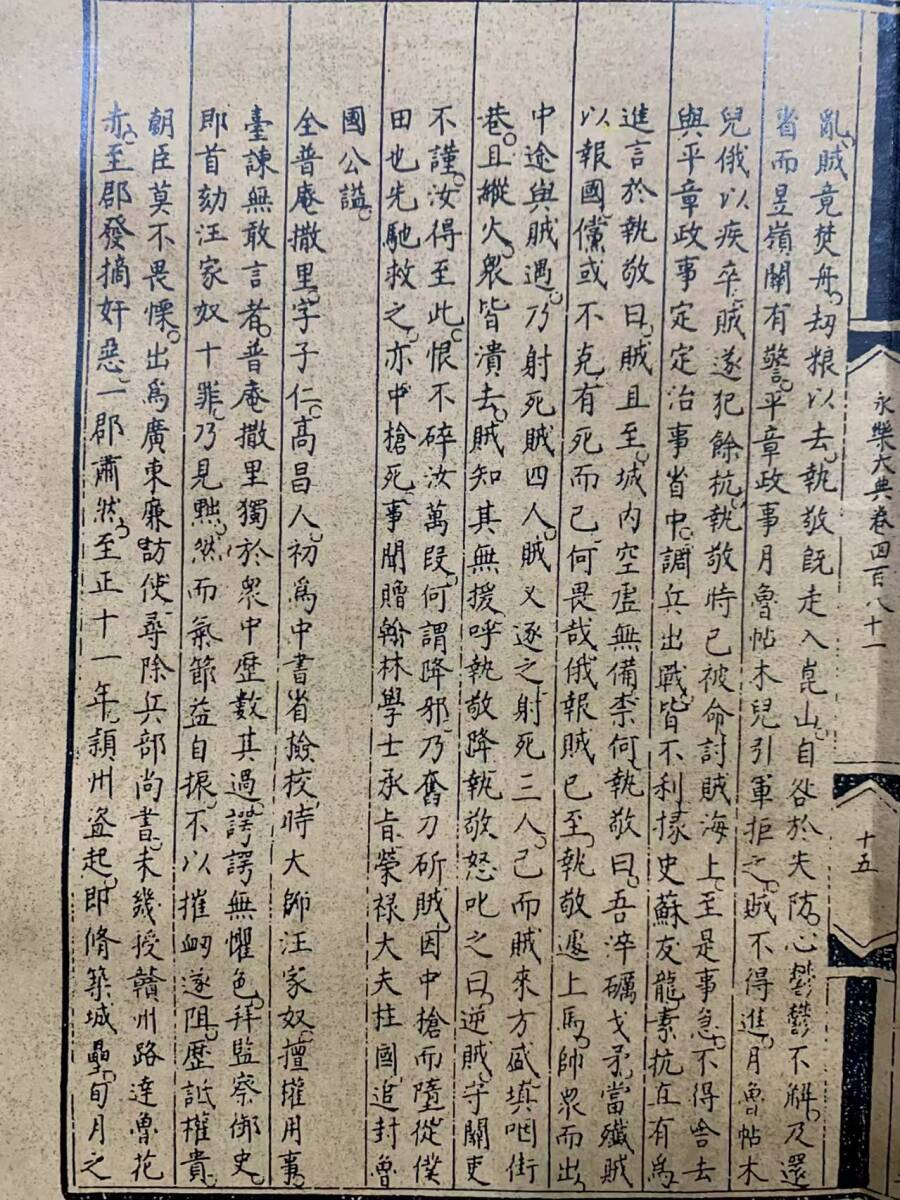 永樂大典卷四百八十一
十五
亂賊竟焚舟刼粮以去執敬既走入崑山自咎於失防心鬱鬱不解及還
省而昱嶺關有警平章政事月魯帖木兒引軍拒之賊不得進月魯帖木
兒俄以疾卒賊遂犯餘杭執敬時已被命討賊海上至是事急不得舍去
與平章政事定定治事省中調兵出戰皆不利掾史蘇友龍素抗直有爲
進言於執敬曰賊且至城内空虛無備柰何執敬曰吾淬礪戈矛當殲賊
以報國儻或不克有死而已何畏哉俄報賊已至執敬遽上馬帥衆而出
中途與賊遇乃射死賊四人賊又逐之射死三人已而賊來方盛填咽街
巷且縱火衆皆潰去賊知其無援呼執敬降執敬怒叱之曰逆賊守關吏
不謹汝得至此恨不碎汝萬段何謂降邪乃奮刀斫賊因中槍而墮從僕
田也先馳救之亦中槍死事聞贈翰林學士承旨榮禄大夫柱國追封魯
國公謚
全普庵撒里字子仁高昌人初爲中書省撿挍時大師汪家奴擅權用事
臺諫無敢言者普庵撒里獨於衆中歷數其過諤諤無懼色拜監察御史
即首劾汪家奴十罪乃見黜然而氣節益自振不以摧衂遂阻歷詆權貴
朝臣莫不畏慄出爲廣東廉訪使尋除兵部尚書未幾授贛州路達魯花
赤至郡發摘奸惡一郡肅然至正十一年頴州盗起即脩築城壘旬月之